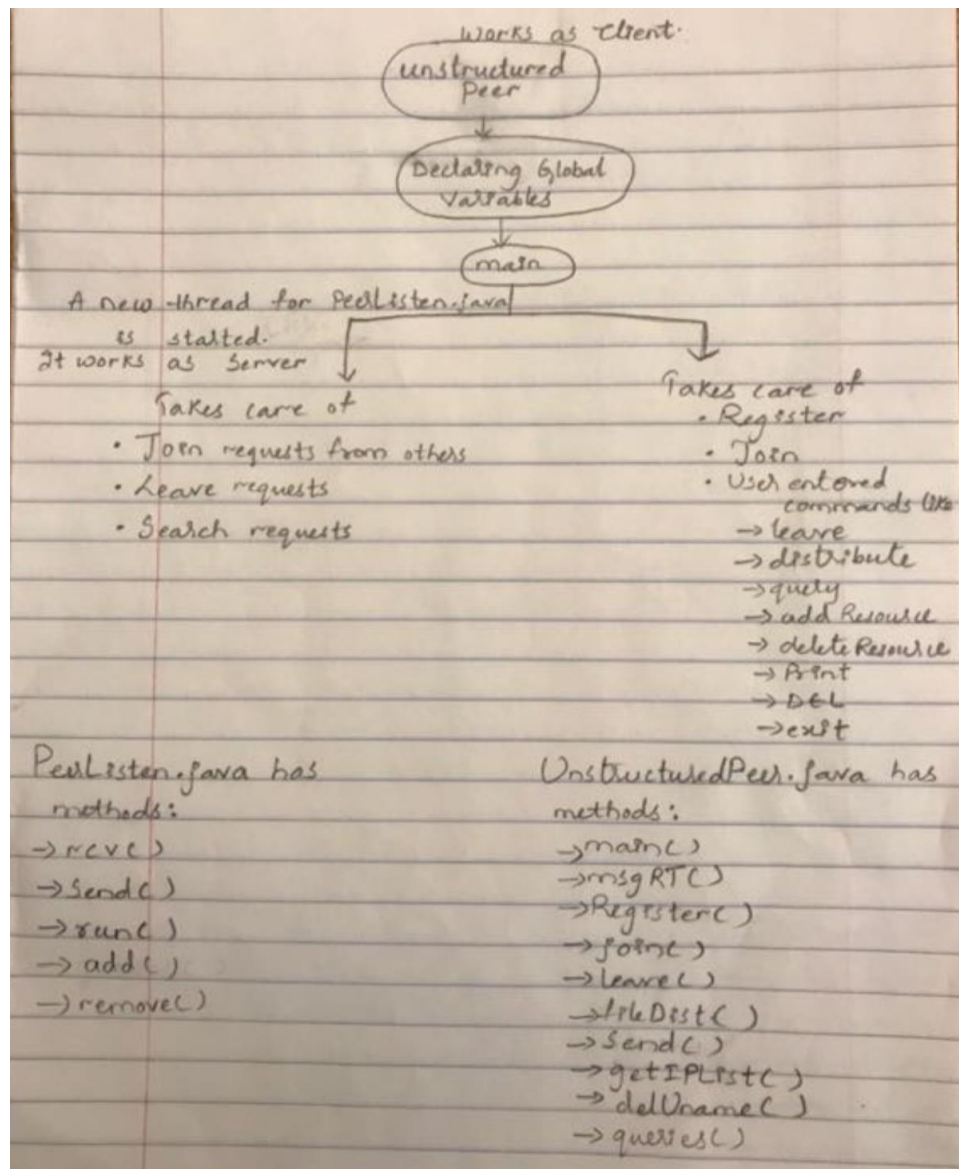 Works as Client.
Unstructured
Peer
Declaring Global
Variables
main
A new thread for PeerListen.java
is started.
It works as Server
Takes care of
• Join requests from others
• Leave requests
• Search requests
Takes care of
• Register
• Join
• User entered
commands like
→ leave
→ distribute
→ query
→ add Resource
→ delete Resource
→ Print
→ DEL
→ exit
PeerListen.java has
methods:
→ rcv()
→ Send()
→ run()
→ add()
→ remove()
UnstructuredPeer.java has
methods:
→ main()
→ msgRT()
→ Register()
→ join()
→ leave()
→ fileDist()
→ Send()
→ getIPList()
→ delUname()
→ queries()